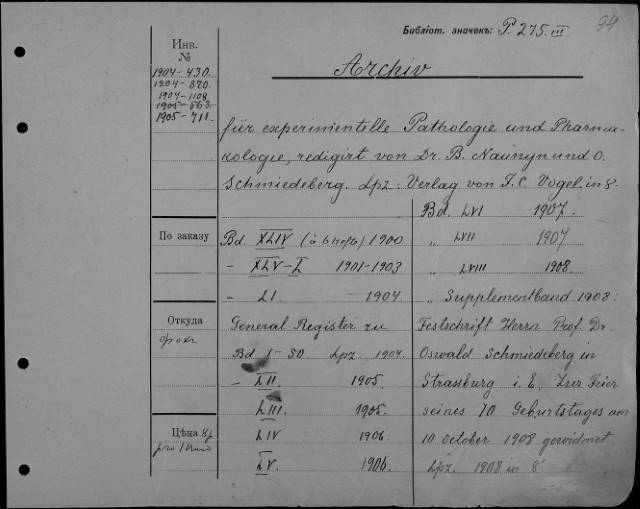 Библіот. значекъ: P. 275 III
94
Инв.
№
1904-430
1904-870
1904-1108
1905-563
1905-711
Archiv
für experimentelle Pathologie und Pharma-
kologie, redigirt von Dr. B. Naunyn und O.
Schmiedeberg. Lpz. Verlag von F. C. Vogel. in 8.
По заказу
Bd. XLIV (à 6 Hefte) 1900
- XLV-L 1901-1903
- LI 1904
Откуда
General Register zu
Bd 1-50. Lpz. 1904.
- LII. 1905.
LIII. 1905.
Цѣна
LIV 1906
LV. 1906
Bd. LVI 1907.
" LVII 1907
" LVIII 1908.
" Supplementband 1908:
Festschrift Herrn Prof. Dr.
Oswald Schmiedeberg in
Strassburg i. E. Zur Feier
seines 70 Geburtstages am
10 October 1908 gewidmet
Lpz. 1908 in 8°